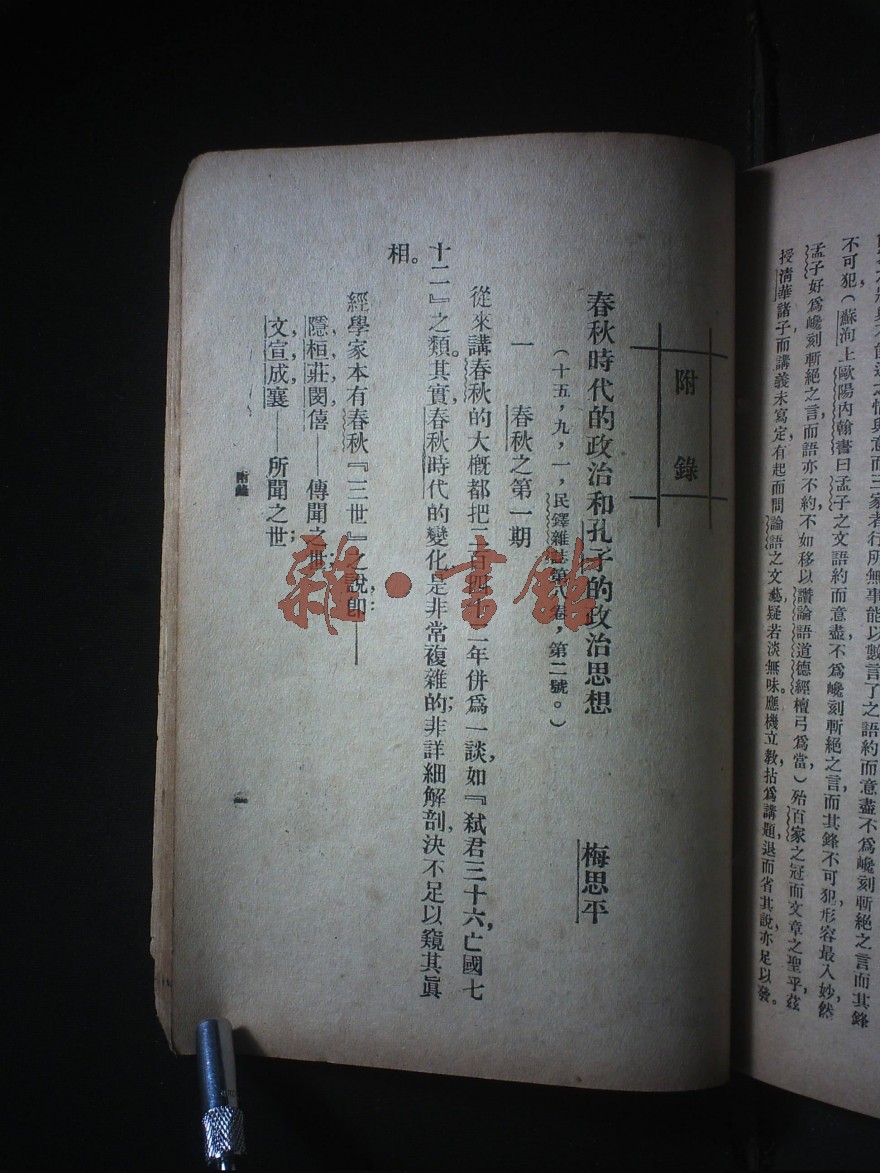 不可犯（蘇洵上歐陽內翰書曰孟子之文語約而意盡不爲巉刻斬絕之言而其鋒不可犯形容最入妙然
孟子好爲巉刻斬絕之言而語亦不約不如移以讚論語道德經檀弓爲當）殆百家之冠而文章之聖乎茲
授淸華諸子而講義未寫定有起而問論語之文藝疑若淡無味應機立敎拈爲講題退而省其說亦足以發。
附錄
春秋時代的政治和孔子的政治思想 梅思平
（十五，九，一，民鐸雜誌第八卷，第二號。）
一 春秋之第一期
從來講春秋的大槪都把二百四十二年併爲一談，如『弒君三十六，亡國七
十二』之類。其實，春秋時代的變化是非常複雜的；非詳細解剖，決不足以窺其眞
相。
經學家本有春秋『三世』之說，卽：——
隱，桓，莊，閔，僖——傳聞之世；
文，宣，成，襄——所聞之世
附錄
一
雜·書館